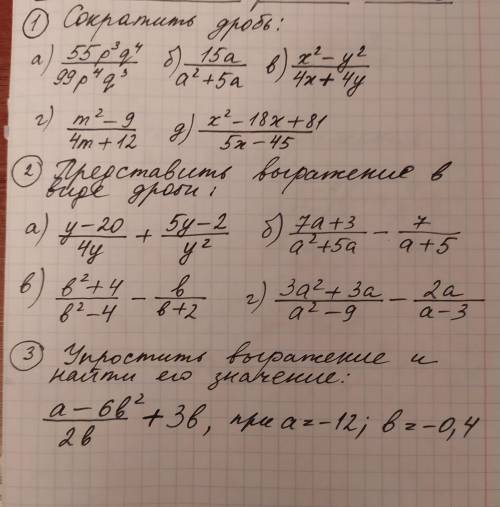 ① Сократить дробь:
а) 55p³q⁴/99p⁴q³ б) 15a/a²+5a в) x²–y²/4x+4y
г) m²–9/4m+12 д) x²–18x+81/5x–45
② Представить выражение в
виде дроби:
а) y–20/4y + 5y–2/y² б) 7a+3/a²+5a – 7/a+5
в) b²+4/b²–4 – b/b+2 г) 3a²+3a/a²–9 – 2a/a–3
③ Упростить выражение и
найти его значение:
a–6b²/2b + 3b, при a=–12; b=–0,4